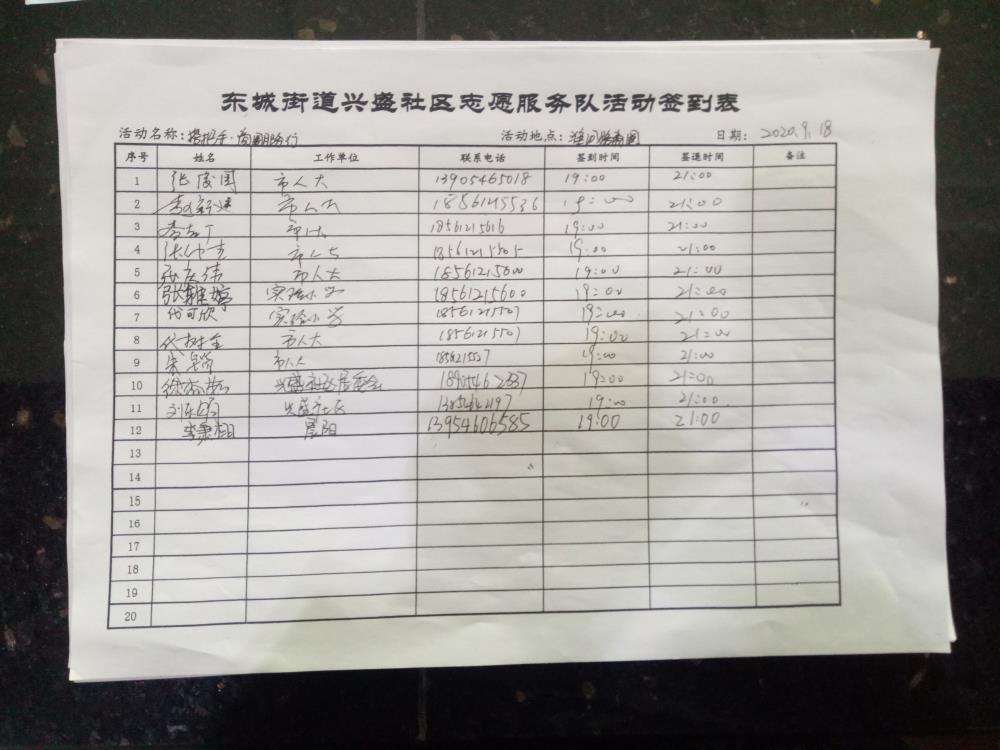 东城街道兴盛社区志愿服务队活动签到表
活动名称: 活动地点: 日期: 2020.9.18
序号 姓名 工作单位 联系电话 签到时间 签退时间 备注
1 市人大 13905465018 19:00 21:00
2 市人大 18561215536 19:00 21:00
3 18561215616 19:00 21:00
4 市人大 18561215505 19:00 21:00
5 张庆伟 市人大 18561215600 19:00 21:00
6 张雅婷 实验小学 18561215600 19:00 21:00
7 代可欣 实验小学 18561215507 19:00 21:00
8 代树金 市人大 18561215507 19:00 21:00
9 市人大 19:00 21:00
10 兴盛社区居委会 19:00 21:00
11 兴盛社区 19:00 21:00
12 晨阳 13954606585 19:00 21:00
13
14
15
16
17
18
19
20